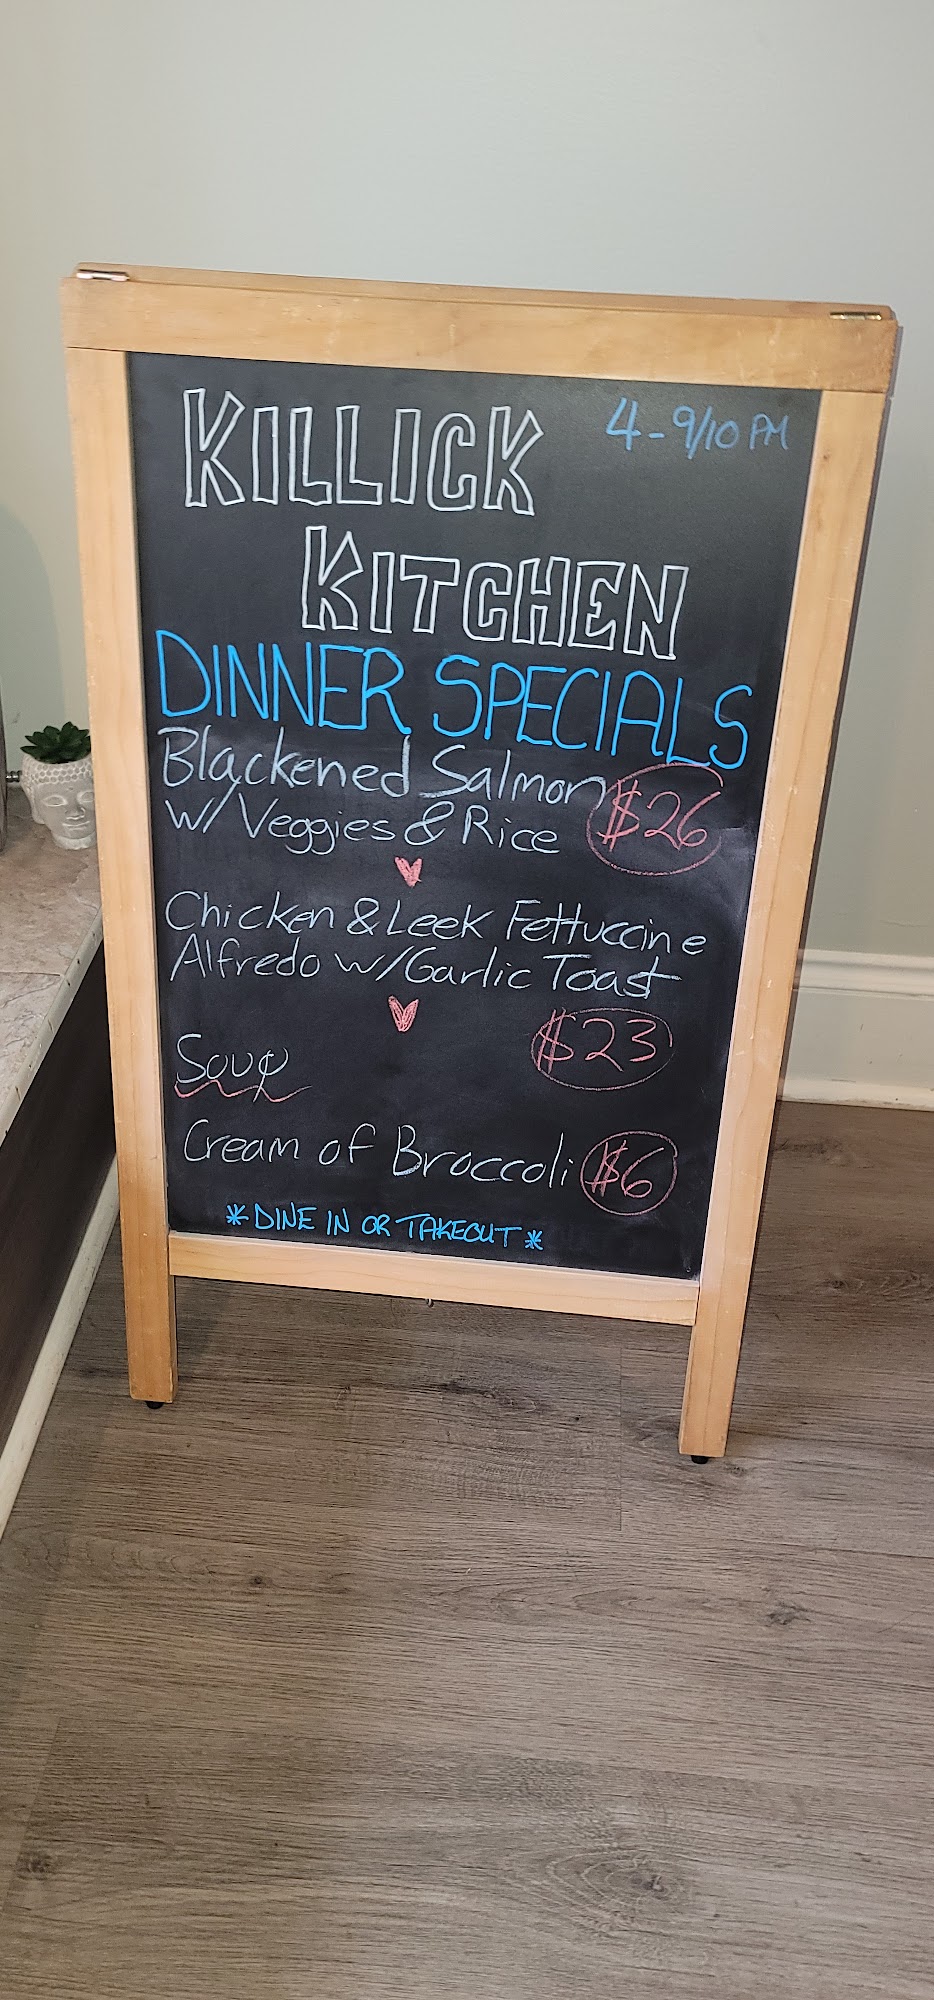 KILLICK
4-9/10 PM
KITCHEN
DINNER SPECIALS
Blackened Salmon
w/ Veggies & Rice $26
Chicken & Leek Fettuccine
Alfredo w/Garlic Toast
$23
Soup
Cream of Broccoli $6
*DINE IN OR TAKEOUT*